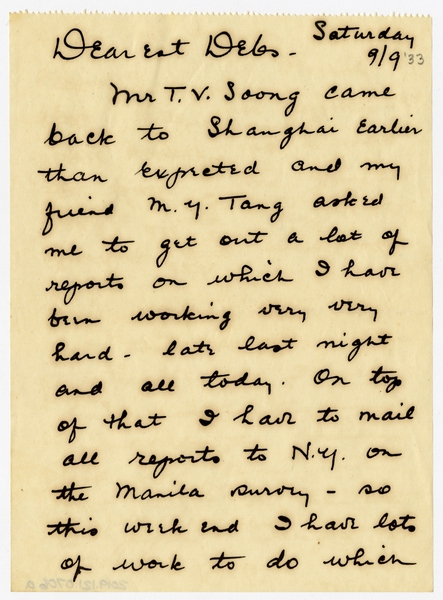 Saturday
Dearest Debs - 9/9 '33
Mr T. V. Soong came
back to Shanghai Earlier
than expected and my
friend M. Y. Tang asked
me to get out a lot of
reports on which I have
been working very very
hard - late last night
and all today. On top
of that I have to mail
all reports to N.Y. on
the Manila survey - so
this week end I have lots
of work to do which
2019.121.0706 A